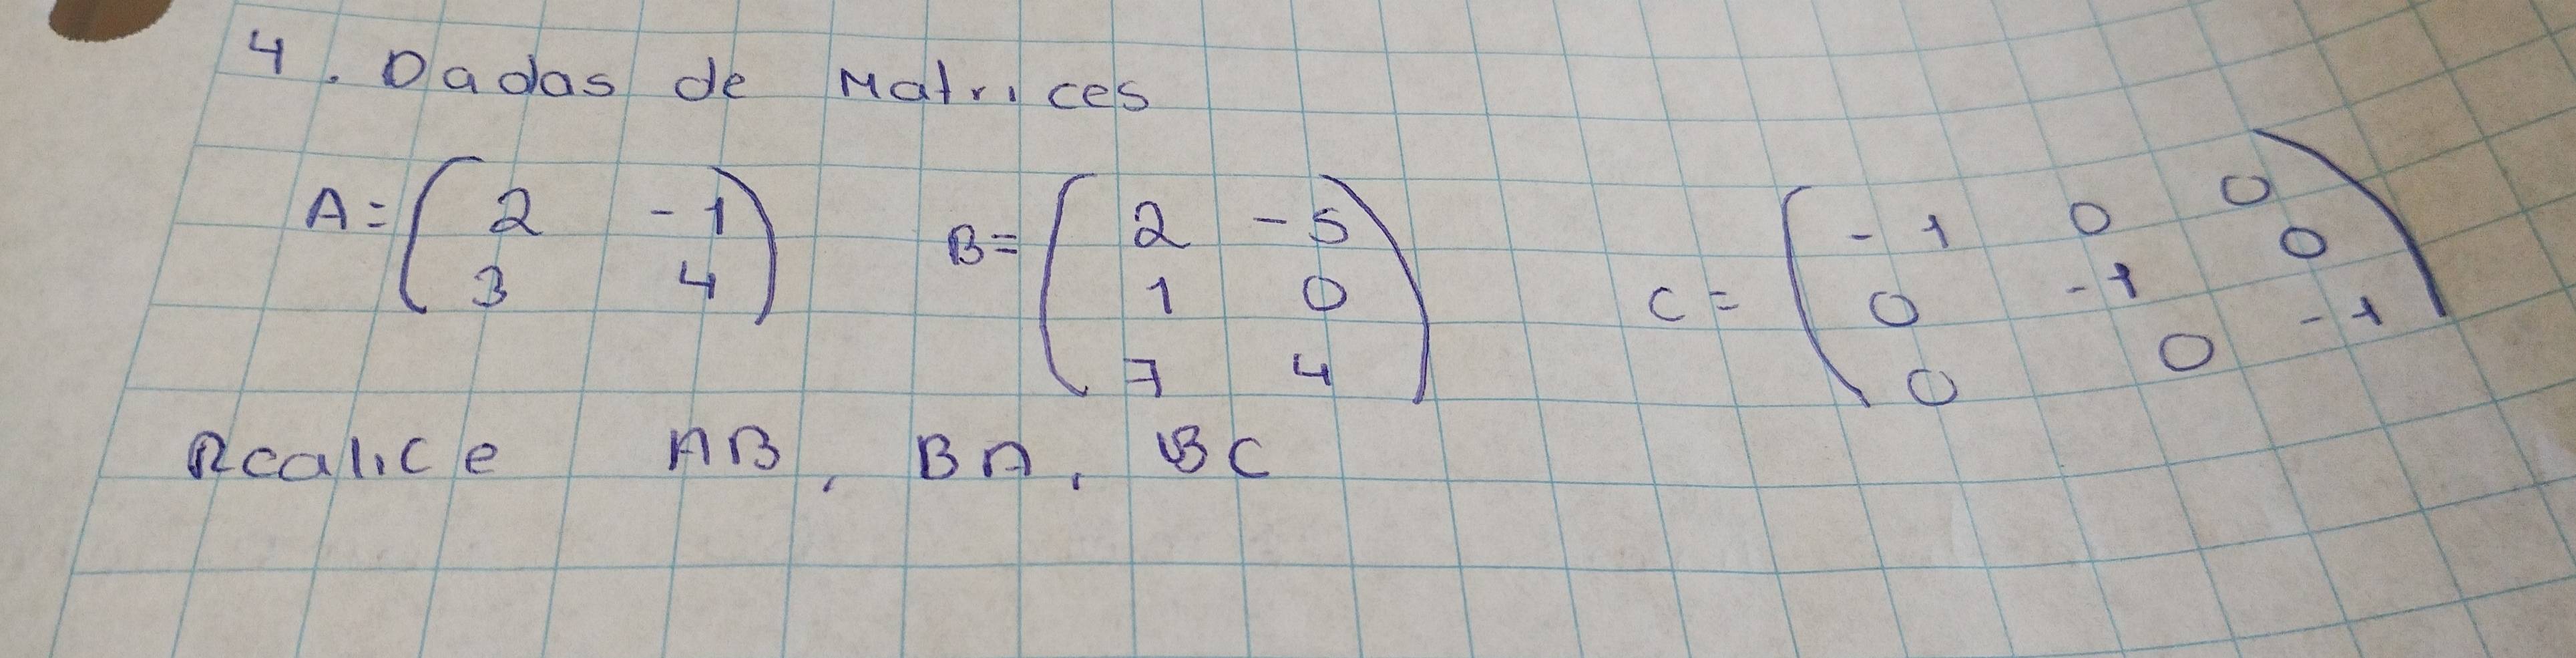 4. Dadas de Matrices
A = ( 2 -1   B = ( 2 -5   C = ( -1 0 0
3 4 )   1 0   0 -1 0
7 4 )   0 0 -1 )
Realice AB, BA, BC